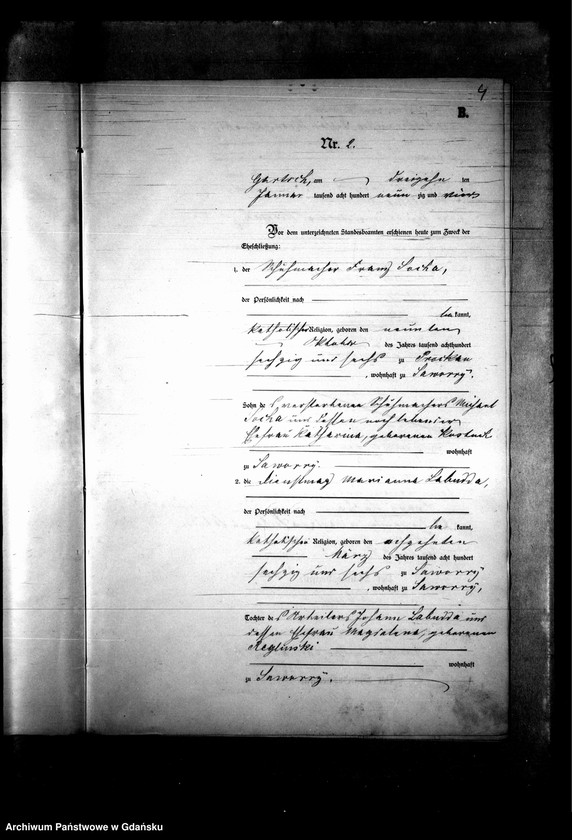 4
B.
Nr. 2.
Gartsch, am dreizehn ten
Januar tausend acht hundert neun zig und vier
Vor dem unterzeichneten Standesbeamten erschienen heute zum Zweck der
Eheschließung:
1. der Schuhmacher Franz Socha,
der Persönlichkeit nach
be kannt,
katholischer Religion, geboren den neunten
Oktober des Jahres tausend achthundert
sechzig und sechs zu
, wohnhaft zu Saworry.
Sohn des verstorbenen Schuhmachers Michael
Socha und dessen noch lebender
Ehefrau Katharina, geborenen
wohnhaft
zu Saworry.
2. die Dienstmagd Marianna Labudda,
der Persönlichkeit nach
be kannt,
katholischer Religion, geboren den achtzehnten
März des Jahres tausend acht hundert
sechzig und sechs zu Saworry
, wohnhaft zu Saworry,
Tochter des Arbeiters Johann Labudda und
dessen Ehefrau Magdalena, geborenen
Reglinski
wohnhaft
zu Saworry.
Archiwum Państwowe w Gdańsku